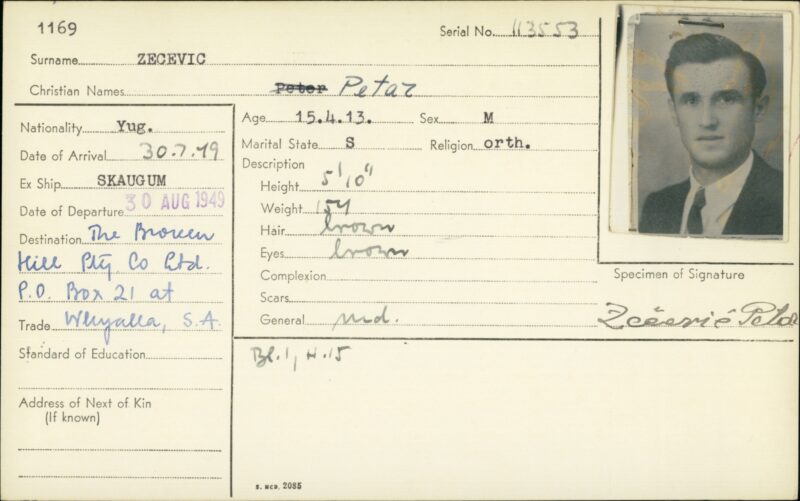 1169
Serial No. 113553
Surname ZECEVIC
Christian Names Peter Petar
Nationality Yug.
Date of Arrival 30.7.49
Ex Ship SKAUGUM
Date of Departure 30 AUG 1949
Destination The Broken
Hill Pty. Co Ltd.
P.O. Box 21 at
Trade Whyalla, S.A.
Standard of Education
Address of Next of Kin
(If known)
Age 15.4.13. Sex M
Marital State S Religion orth.
Description
Height 5'10"
Weight 154
Hair brown
Eyes brown
Complexion
Scars
General md.
Bl.1, H.15
Specimen of Signature
Zečević Petar
S. MCD. 2085